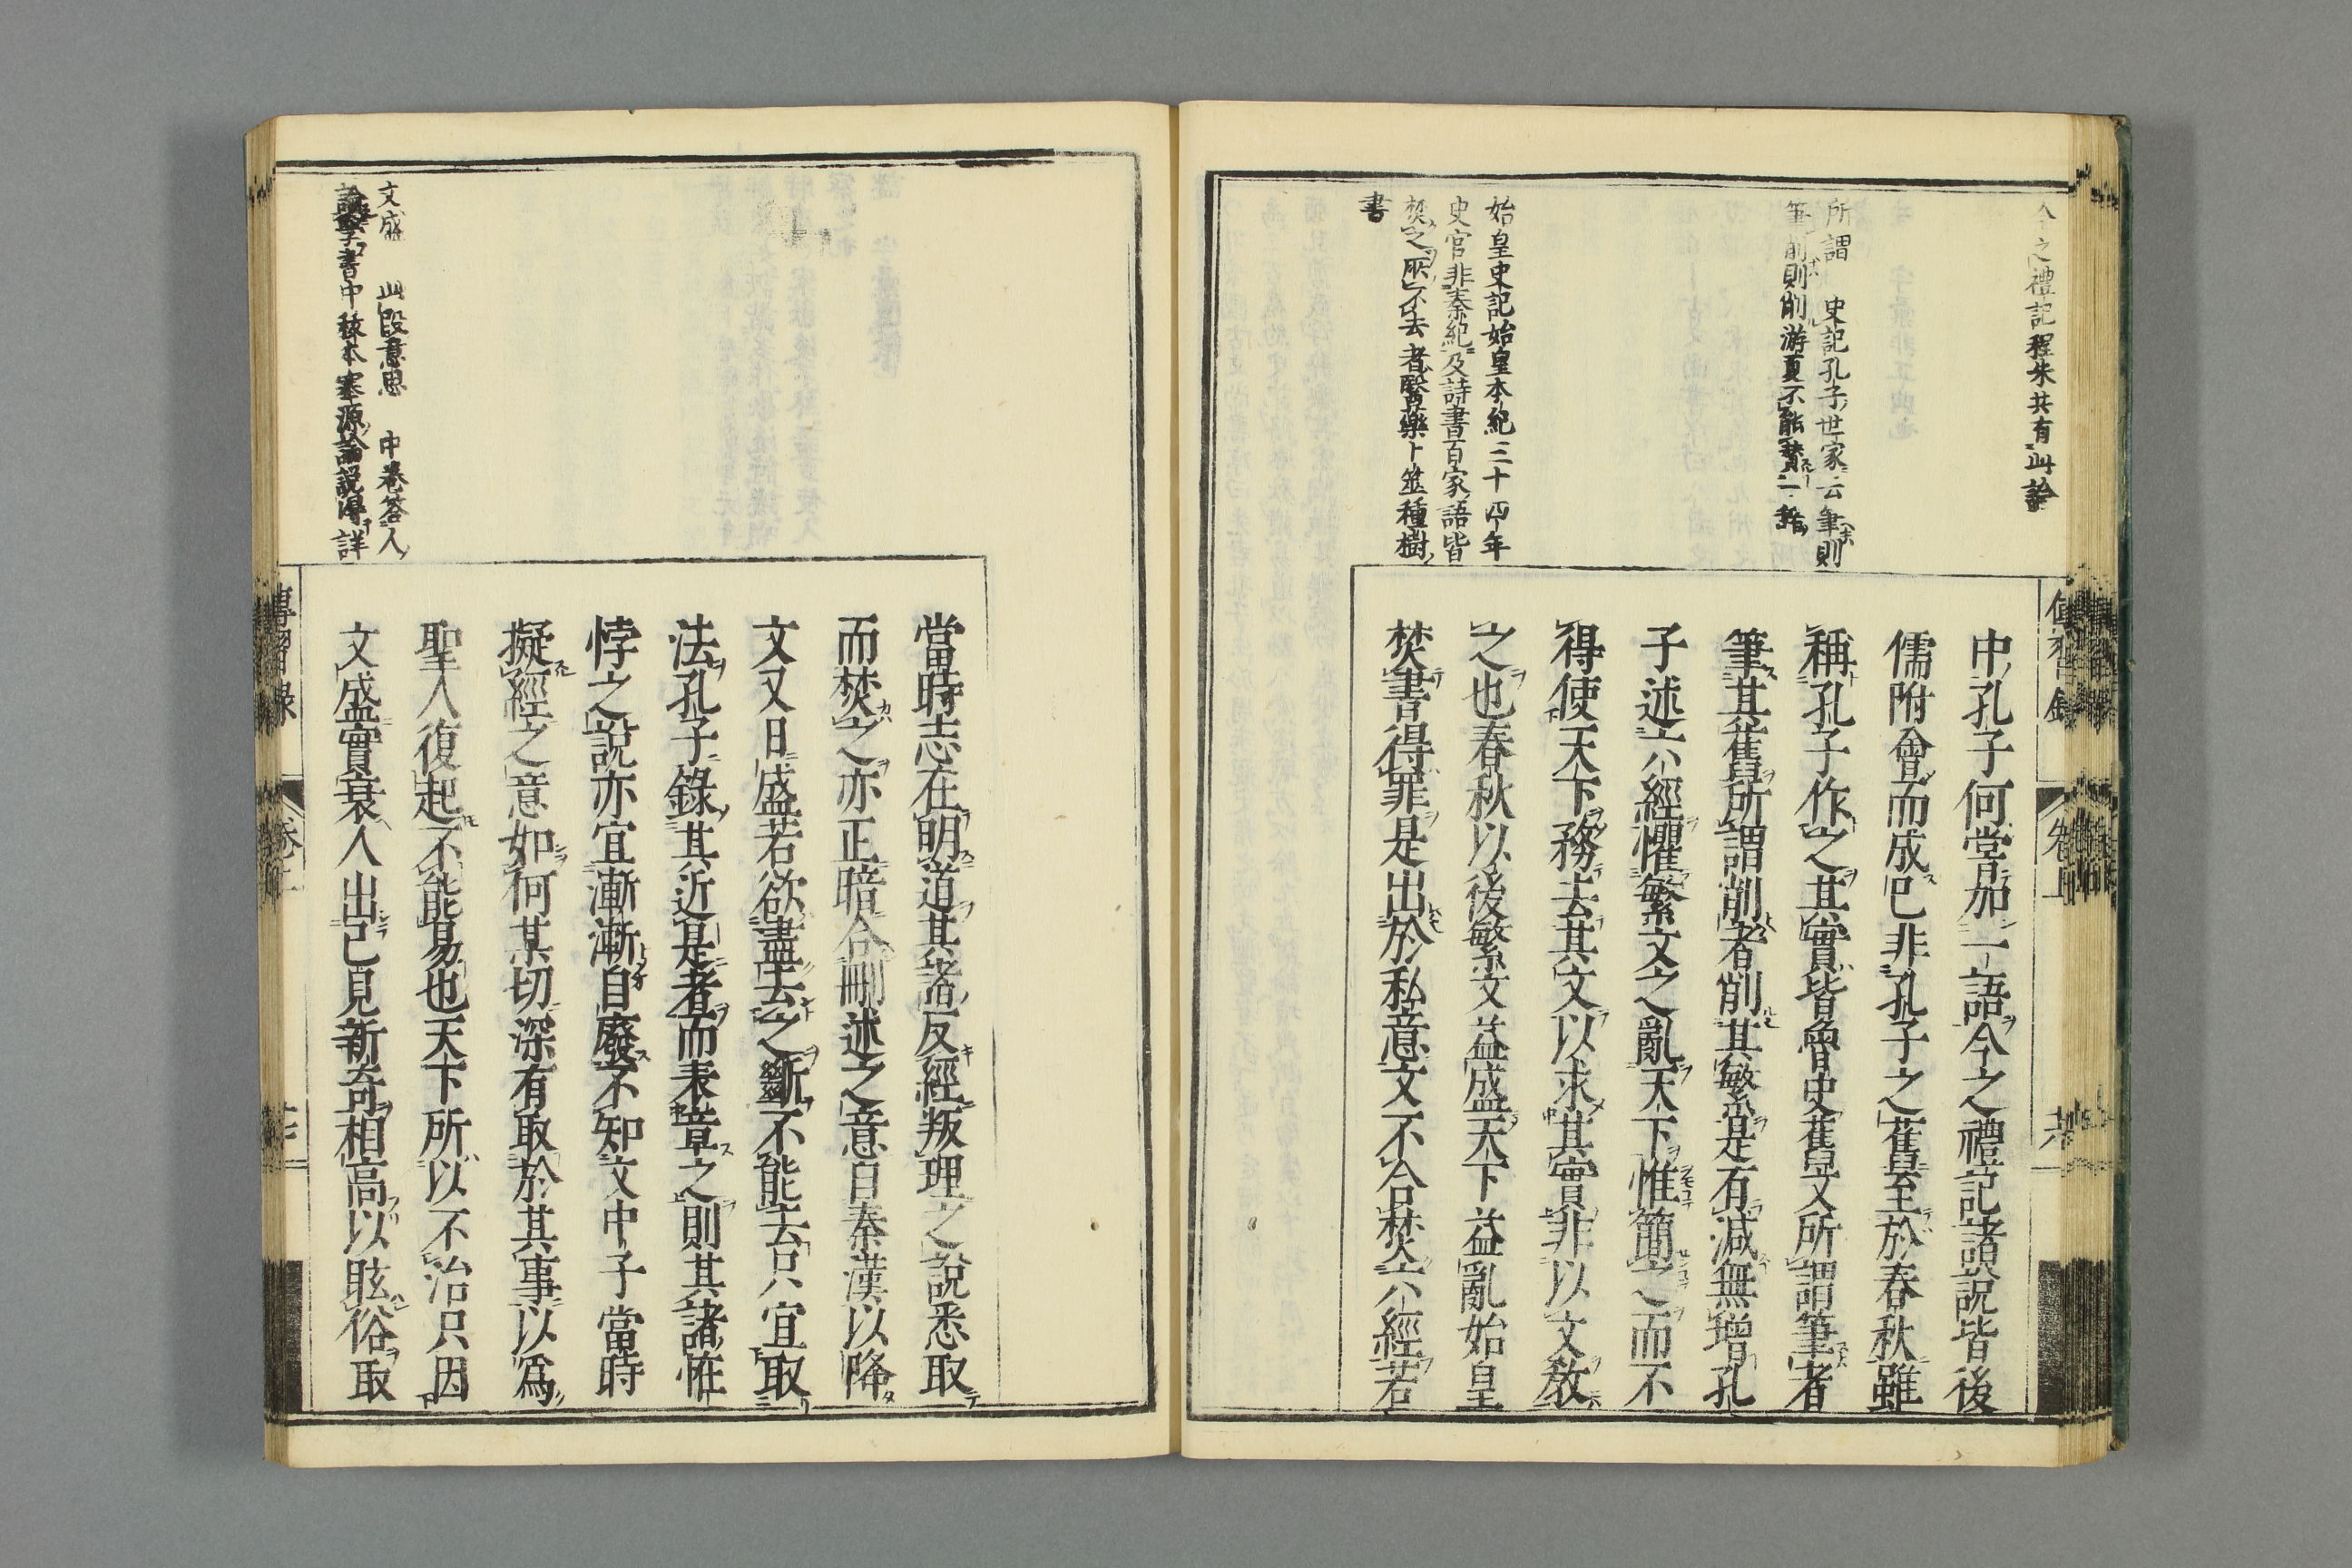 今之禮記程朱共有此論
所謂 史記孔子世家云筆則
筆削則削游夏不能賛一辭
始皇史記始皇本紀三十四年
史官非秦紀及詩書百家語皆
焚之所不去者醫藥卜筮種樹
書
中孔子何嘗加一語今之禮記諸說皆後
儒附會而成已非孔子之舊至於春秋雖
稱孔子作之其實皆魯史舊文所謂筆者
筆其舊所謂削者削其繁是有減無增孔
子述六經懼繁文之亂天下惟簡之而不
得使天下務去其文以求其實非以文敎
之也春秋以後繁文益盛天下益亂始皇
焚書得罪是出於私意文不合焚六經若
文盛 此段意思 中卷答人
論學書中拔本塞源論說得詳
當時志在明道其諸反經叛理之說悉取
而焚之亦正暗合刪述之意自秦漢以降
文又日盛若欲盡去之斷不能去只宜取
法孔子錄其近是者而表章之則其諸恠
悖之說亦宜漸漸自廢不知文中子當時
擬經之意如何某切深有取於其事以爲
聖人復起不能易也天下所以不治只因
文盛實衰人出己見新奇相高以眩俗取
傳習錄
卷上